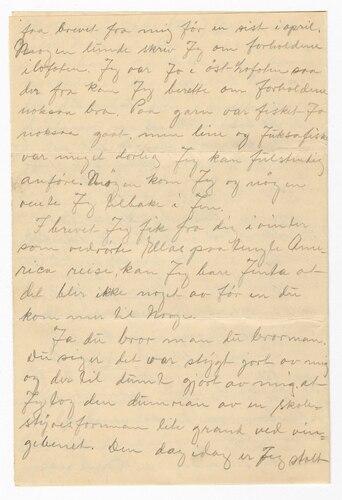 faa brevet fra mig før en sist i april.
Nøgen kunde skriv Jy om forholdene
i lofoten. Jy var Jo i öst-Lofoten saa
der fra kan Jy berette om forholdene
noksaa bra. Paa garn var fisket Jo
noksaa godt, men line og Juksafiske
var meget dorlig Jy kan fulstendig
anføre. Nøgen kom Jy og nøgen
vente Jy tilbake i Jen.
I brevet Jy fik fra dig i vinter
som vedrörte Ellas paa tengte Ame-
rica reise, kan Jy bare Jinta at
det blir ikke noget av før en du
kom mer til Norge.
Ja du bror man du brorman.
Du siger det var stygt gort av mig
og der til dumt gjort av mig, at
Jy tog den dumrian av en skole-
styresforman lite grand ved vin-
gebenet. Den dag idag er Jy stolt